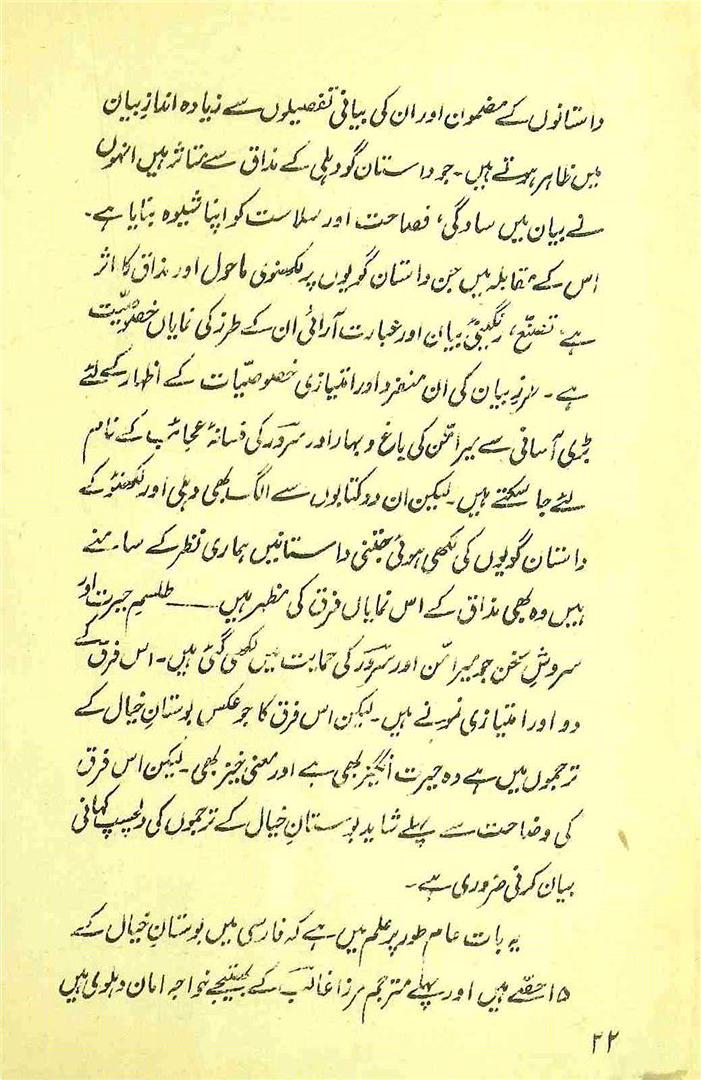 داستانوں کے مضمون اور ان کی بیانی تفصیلوں سے زیادہ اندازِ بیان
میں ظاہر ہوتے ہیں۔ جو داستان گو دہلی کے مذاق سے متاثر ہیں انہوں
نے بیان میں سادگی، فصاحت اور سلاست کو اپنا شیوہ بنایا ہے۔
اس کے مقابلہ میں جن داستان گویوں پر لکھنوی ماحول اور مذاق کا اثر
ہے، تصنّع، رنگینیٔ بیان اور عبارت آرائی ان کے طرز کی نمایاں خصوصیّت
ہے۔ طرزِ بیان کی ان منفرد اور امتیازی خصوصیّات کے اظہار کے لئے
بڑی آسانی سے میرامّن کی باغ و بہار اور سرور کی فسانۂ عجائب کے نام
لئے جا سکتے ہیں۔ لیکن ان دو کتابوں سے الگ بھی دہلی اور لکھنؤ کے
داستان گویوں کی لکھی ہوئی جتنی داستانیں ہماری نظر کے سامنے
ہیں وہ بھی مذاق کے اس نمایاں فرق کی مظہر ہیں ــــــ طلسمِ حیرت اور
سروشِ سخن جو میرامّن اور سرور کی حمایت میں لکھی گئی ہیں۔ اس فرق کے
دو اور امتیازی نمونے ہیں۔ لیکن اس فرق کا جو عکس بوستانِ خیال کے
ترجموں میں ہے وہ حیرت انگیز بھی ہے اور معنی خیز بھی۔ لیکن اس فرق
کی وضاحت سے پہلے شاید بوستانِ خیال کے ترجموں کی دلچسپ کہانی
بیان کرنی ضروری ہے۔
یہ بات عام طور پر علم میں ہے کہ فارسی میں بوستانِ خیال کے
۱۵ حصّے ہیں اور پہلے مترجم مرزا غالب کے بھتیجے خواجہ امان دہلوی ہیں
۲۲